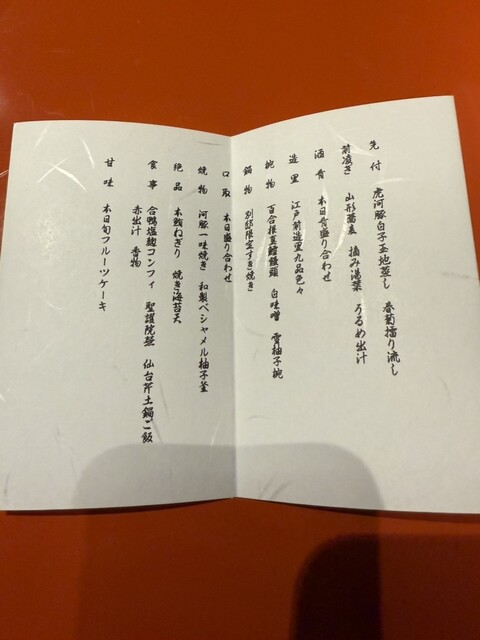 先付 虎河豚白子玉地蒸し 春菊擂り流し
前凌ぎ 山形蕎麦 摘み湯葉 うるめ出汁
酒肴 本日肴盛り合わせ
造里 江戸前造里九品色々
椀物 百合根真鱈饅頭 白味噌 雪柚子椀
鍋物 別誂限定すき焼き
口取 本日盛り合わせ
焼物 河豚一味焼き 和製ベシャメル柚子釜
絶品 本鮪ねぎり 焼き海苔天
食事 合鴨塩麹コンフィ 聖護院蕪 仙台芹土鍋ご飯
赤出汁 香物
甘味 本日旬フルーツケーキ